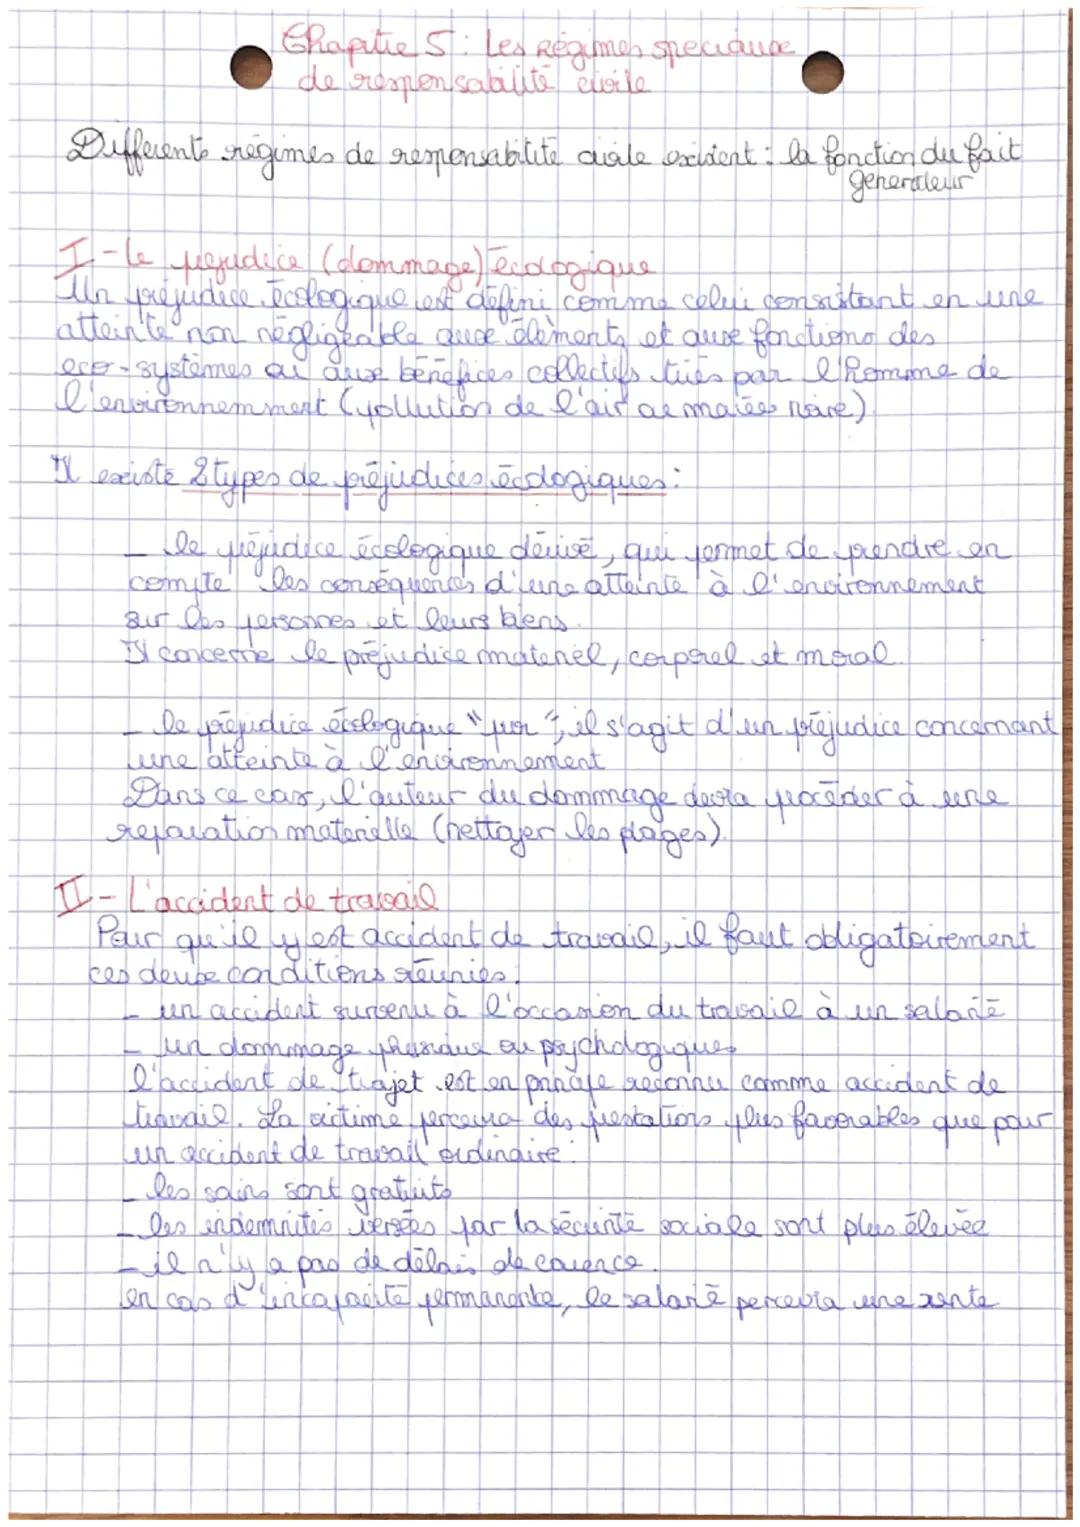 Chapitre 5 : Les Régimes speciaux
de responsabilité civile
Differents régimes de responsabilité civile existent : la fonction du fait
generateur
I - Le prejudice (dommage) écologique
Un préjudice écologique est défini comme celui consistant en une
atteinte non négligeable aux éléments et aux fonctions des
eco-systèmes ou aux bénéfices collectifs tirés par l'Homme de
l'environnemment (pollution de l'air ou marées noire).
Il existe 2 types de préjudices écologiques :
- le préjudice écologique dérivé, qui permet de prendre en
compte les conséquences d'une atteinte à l'environnement
sur les personnes et leurs biens.
Il concerne le préjudice materiel, corporel et moral.
- le préjudice écologique "pur", il s'agit d'un préjudice concernant
une atteinte à l'environnement
Dans ce cas, l'auteur du dommage devra procéder à une
reparation materielle (nettoyer les plages).
II - L'accident de travail
Pour qu'il y est accident de travail, il faut obligatoirement
ces deux conditions réunies :
- un accident survenu à l'occasion du travail à un salarié
- un dommage physique ou psychologiques
l'accident de trajet est en principe reconnu comme accident de
travail. La victime percevra des prestations plus favorables que pour
un accident de travail ordinaire :
- les soins sont gratuits
- les indemnités versées par la sécurité sociale sont plus élevée
- il n'y a pas de délais de carence.
en cas d'incapacité permanante, le salarié percevra une rente